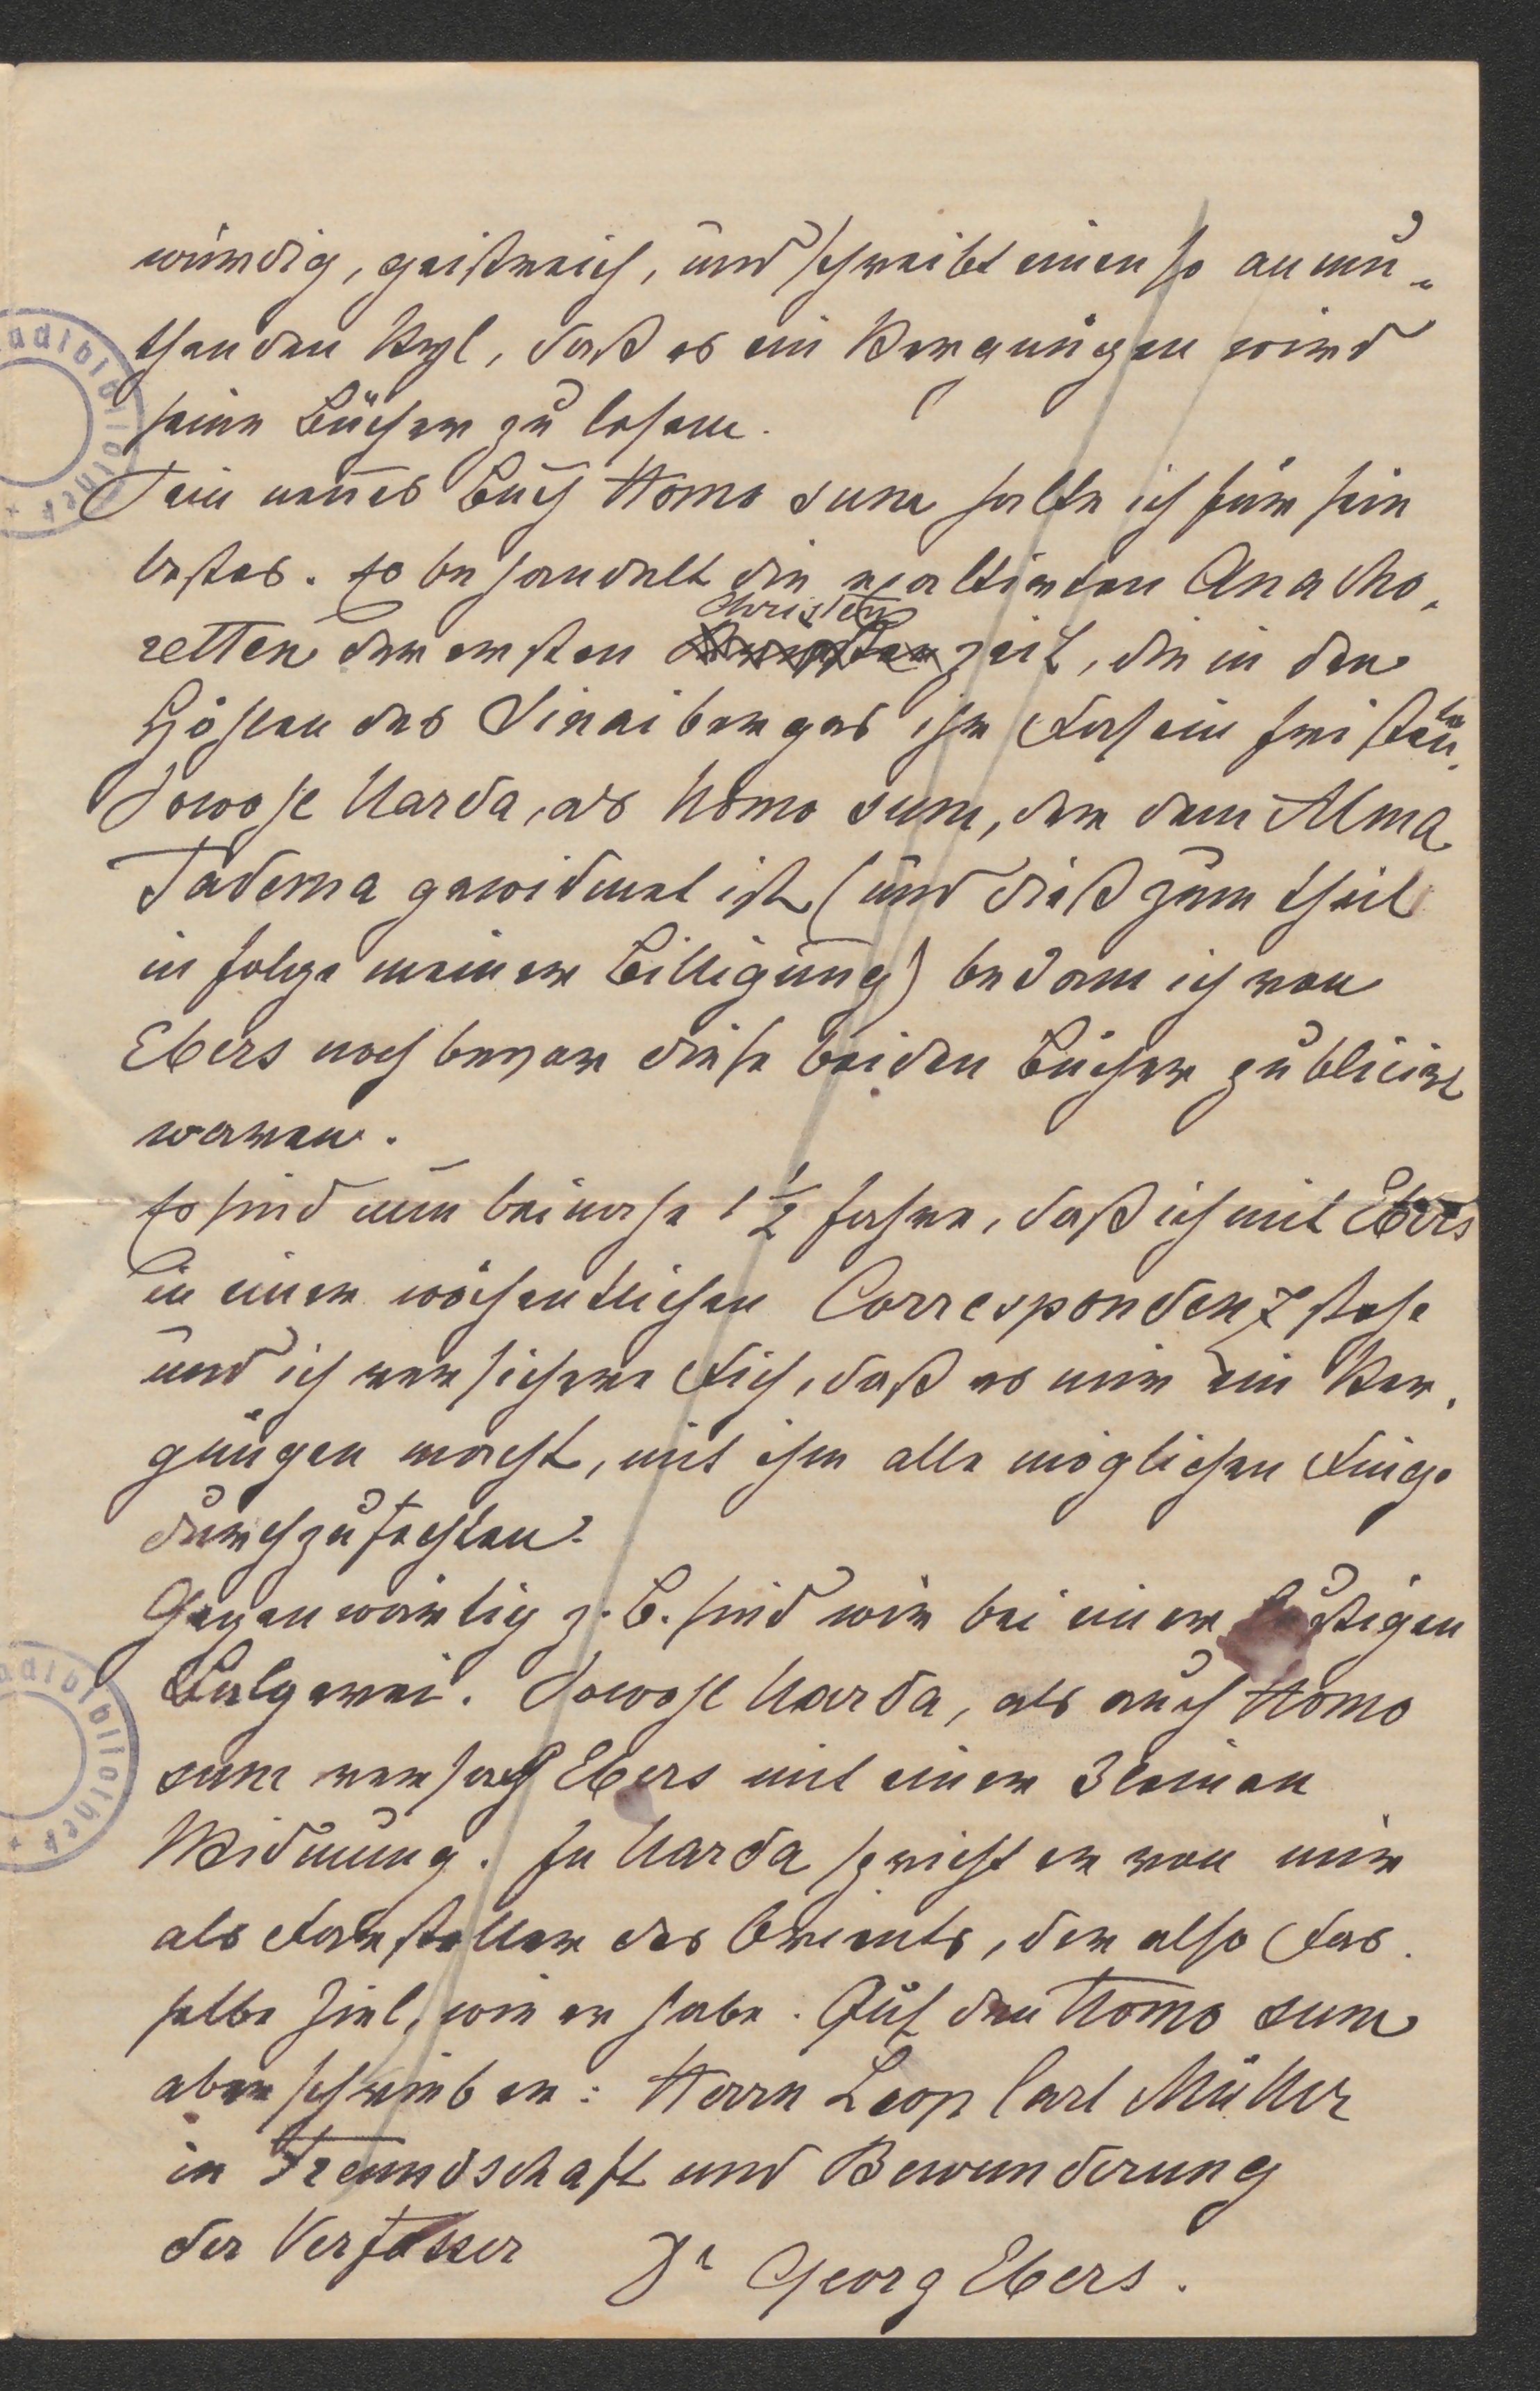 würdig, geistreich, und schreibt einen so anmu-
thenden Styl, daß es ein Vergnügen wird
seine Bücher zu lesen.
Sein neues Buch Homo sum halte ich für sein
bestes. Es behandelt die exaltirten Anacho-
retten der ersten Christenzeit, die in den
Höhlen des Sinaiberges ihr Dasein fristeten.
Sowohl Uarda, als Homo sum, der dem Alma
Tadema gewidmet ist (und dieß zum theil
in folge meiner Billigung) bekam ich von
Ebers noch bevor diese beiden Bücher publicirt
waren.
Es sind nun beinahe 1 1/2 Jahre, daß ich mit Ebers
in einer wöchentlichen Correspondenz stehe
und ich versichere Dich, daß es mir ein Ver-
gnügen macht, mit ihm alle möglichen Dinge
durchzufechten.
Gegenwärtig z. B. sind wir bei einer lustigen
Balgerei. Sowohl Uarda, als auch Homo
sum versah Ebers mit einer kleinen
Widmung. In Uarda spricht er von mir
als Darsteller des Orients, der also das-
selbe Ziel, wie er habe. Auf den Homo sum
aber schrieb er: Herrn Leop Carl Müller
in Freundschaft und Bewunderung
der Verfasser Dr Georg Ebers.